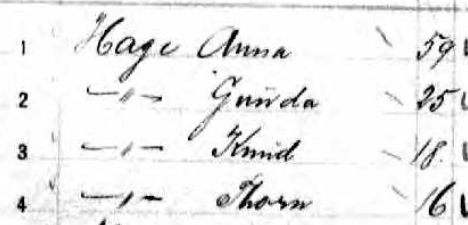 1 Hage Anna \ 59
2 —〃— Gunda \ 25
3 —〃— Knud \ 18.
4 —〃— Thorn \ 16